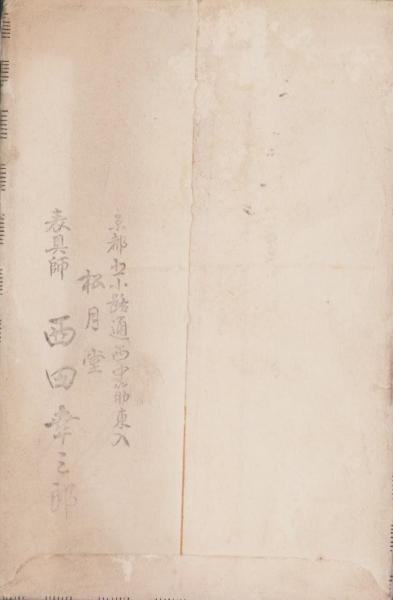 京都北小路通西中筋東入
松月堂
表具師 西田幸三郎